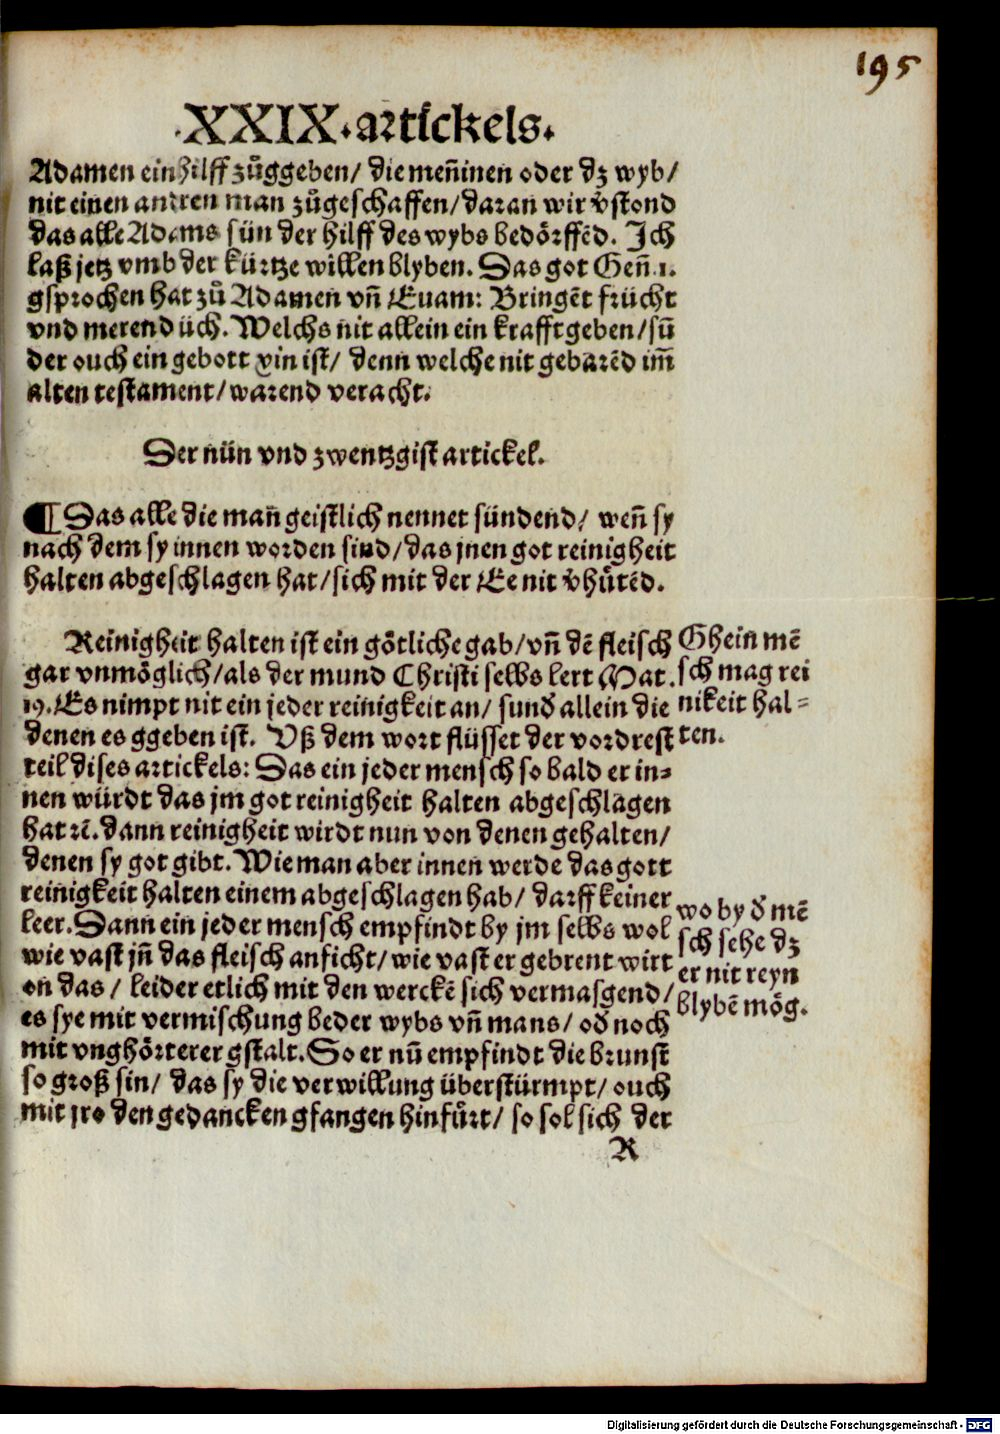 195
·XXIX·artickels·
Adamen ein hilff zůggeben/ die meñinen oder dz wyb/
nit einen andren man zůgeschaffen/ daran wir v̄stond
das alle Adams sün der hilff des wybs bedörffēd. Ich
laß jetz vmb der kürtze willen blyben. Das got Geñ.1.
gsprochen hat zů Adamen vñ Euam: Bringēt frücht
vnd merend üch. Welchs nit allein ein krafft geben/ sū
der ouch ein gebott xin ist/ denn welche nit gebarēd im̄
alten testament/ warend veracht.
Der nün vnd zwentzgist artickel.
¶ Das alle die mañ geistlich nennet sündend/ weñ sy
nach dem sy innen worden sind/ das jnen got reinigheit
halten abgeschlagen hat/ sich mit der Ee nit v̄hůtēd.
Reinigheit halten ist ein götliche gab/ vñ dē fleisch
gar vnmöglich/ als der mund Christi selbs lert Mat.
19. Es nimpt nit ein jeder reinigkeit an/ sunď allein die
denen es ggeben ist. Vß dem wort flüsset der vordrest
teil dises artickels: Das ein jeder mensch so bald er in⸗
nen würdt das jm got reinigheit halten abgeschlagen
hat ꝛc̄. dann reinigheit wirdt nun von denen gehalten/
denen sy got gibt. Wie man aber innen werde das gott
reinigkeit halten einem abgeschlagen hab/ darff keiner
leer. Dann ein jeder mensch empfindt by jm selbs wol
wie vast jñ das fleisch anficht/ wie vast er gebrent wirt
on das/ leider etlich mit den werckē sich vermasgend/
es sye mit vermischung beder wybs vñ mans/ oď noch
mit vnghörterer gstalt. So er nū empfindt die brunst
so groß sin/ das sy die verwillung überstürmpt/ ouch
mit jro den gedancken gfangen hinfůrt/ so sol sich der
R
Ghein mē
sch mag rei
nikeit hal⸗
ten.
wo by ď mē
sch sehe dz
er nit reyn
blybē mög.
Digitalisierung gefördert durch die Deutsche Forschungsgemeinschaft - DFG